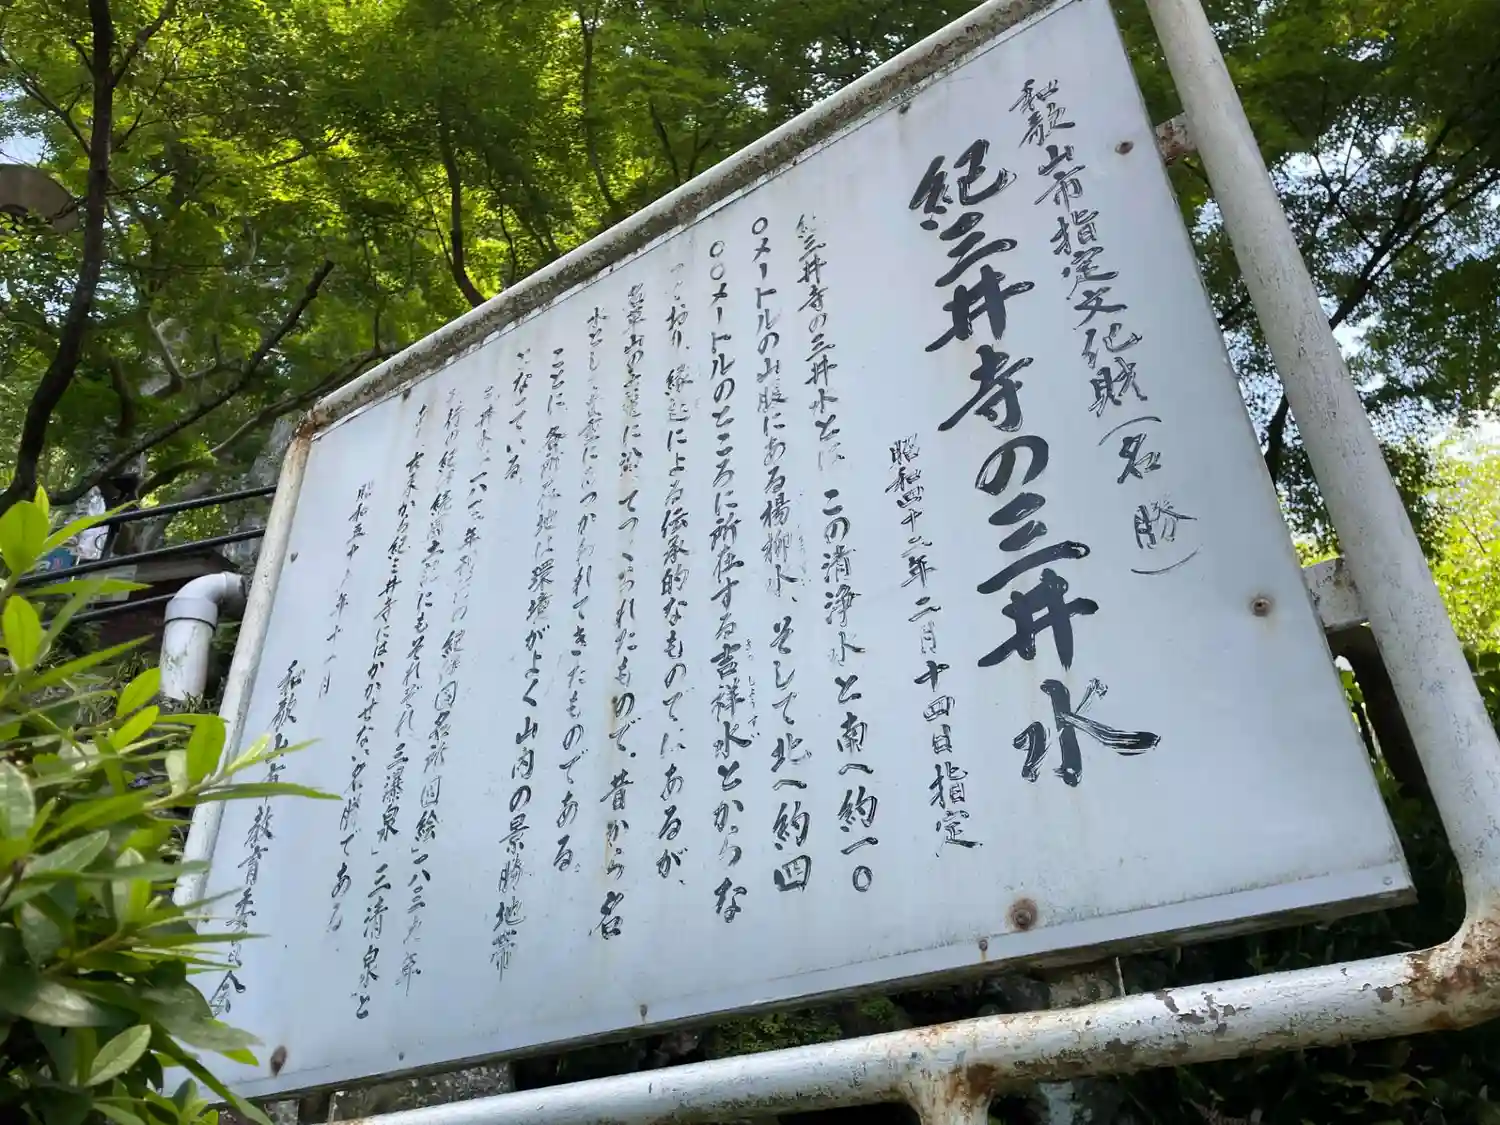 和歌山市指定文化財(名勝)
紀三井寺の三井水
昭和四十二年二月十四日指定
紀三井寺の三井水とは、この清浄水と南へ約一〇
〇メートルの山股にある楊柳水、そして北へ約四
〇〇メートルのところに所在する吉祥水とからな
きっしょうすい
っており、縁起による伝承的なものではあるが、
当草山の霊竜に沿ってつくられたもので、昔から名
水として大切につかわれてきたものである。
ことに、各所在地は環境がよく山内の景勝地帯
になっている。
三井水は、一八一二年刊行の「紀伊国名所図絵」一八三九年
刊行の「紀伊続風土記」にもそれぞれ「三瀑泉」「三清泉」と
あり、古来から紀三井寺にはかかせない名勝である。
昭和五十 年十一月
和歌山市教育委員会